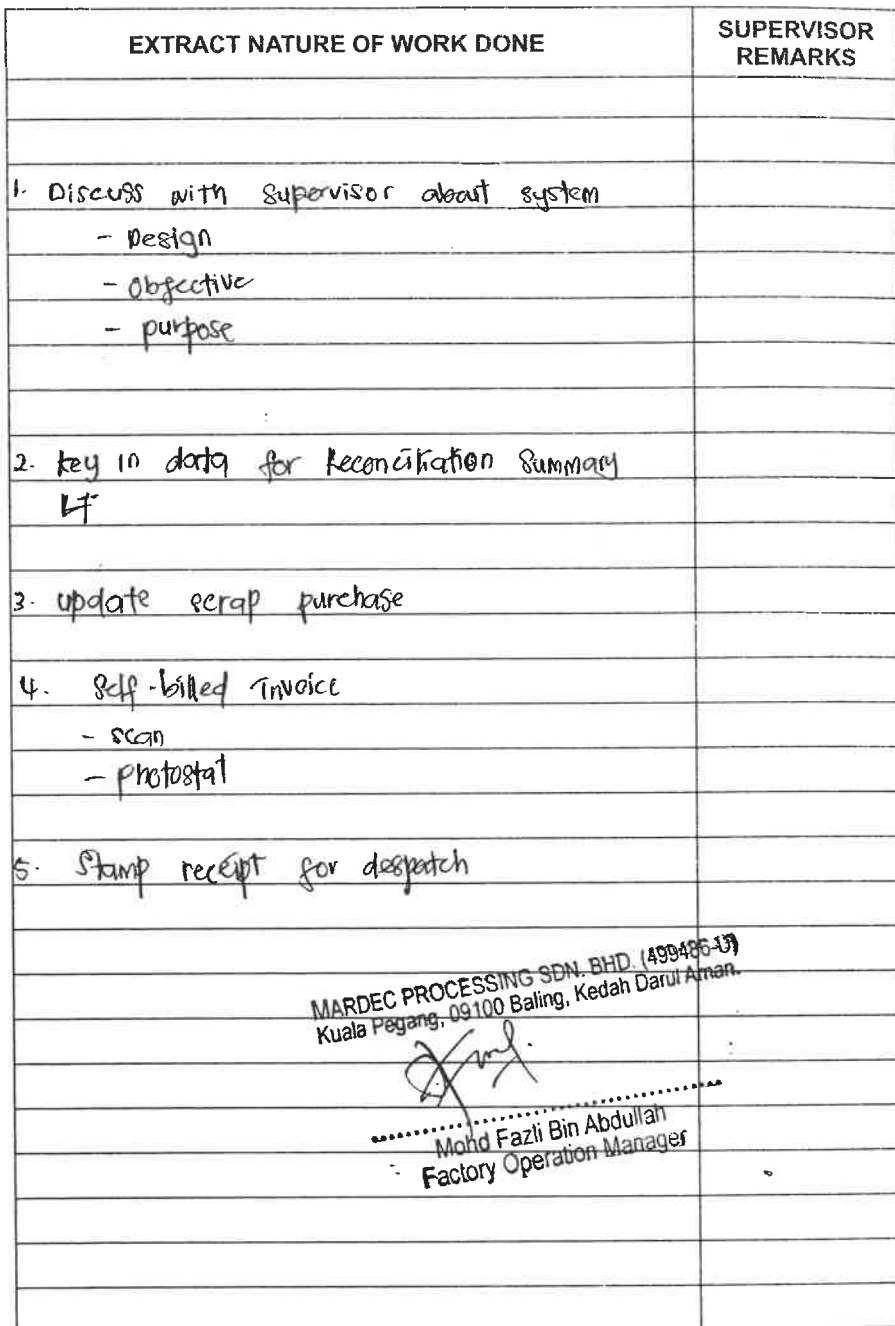 EXTRACT NATURE OF WORK DONE
SUPERVISOR
REMARKS
1. Discuss with supervisor about system
- Design
- Objective
- purpose
2. key in data for Reconciliation Summary
3. update scrap purchase
4. Self-billed Invoice
- scan
- photostat
5. Stamp receipt for despatch
MARDEC PROCESSING SDN. BHD. (499486-U)
Kuala Pegang, 09100 Baling, Kedah Darul Aman.
Mohd Fazli Bin Abdullah
Factory Operation Manager